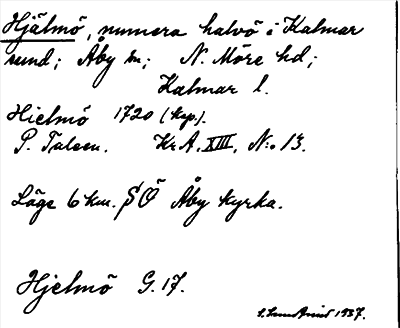 Hjälmö, numera halvö i Kalmar
sund; Åby sn; N. Möre hd;
Kalmar l.
Hielmö 1720 (kop).
P. Tulsen. Kr.A. XIII, N:o 13.
Läge 6 km. SÖ Åby kyrka.
Hjelmö G. 17.
1937.